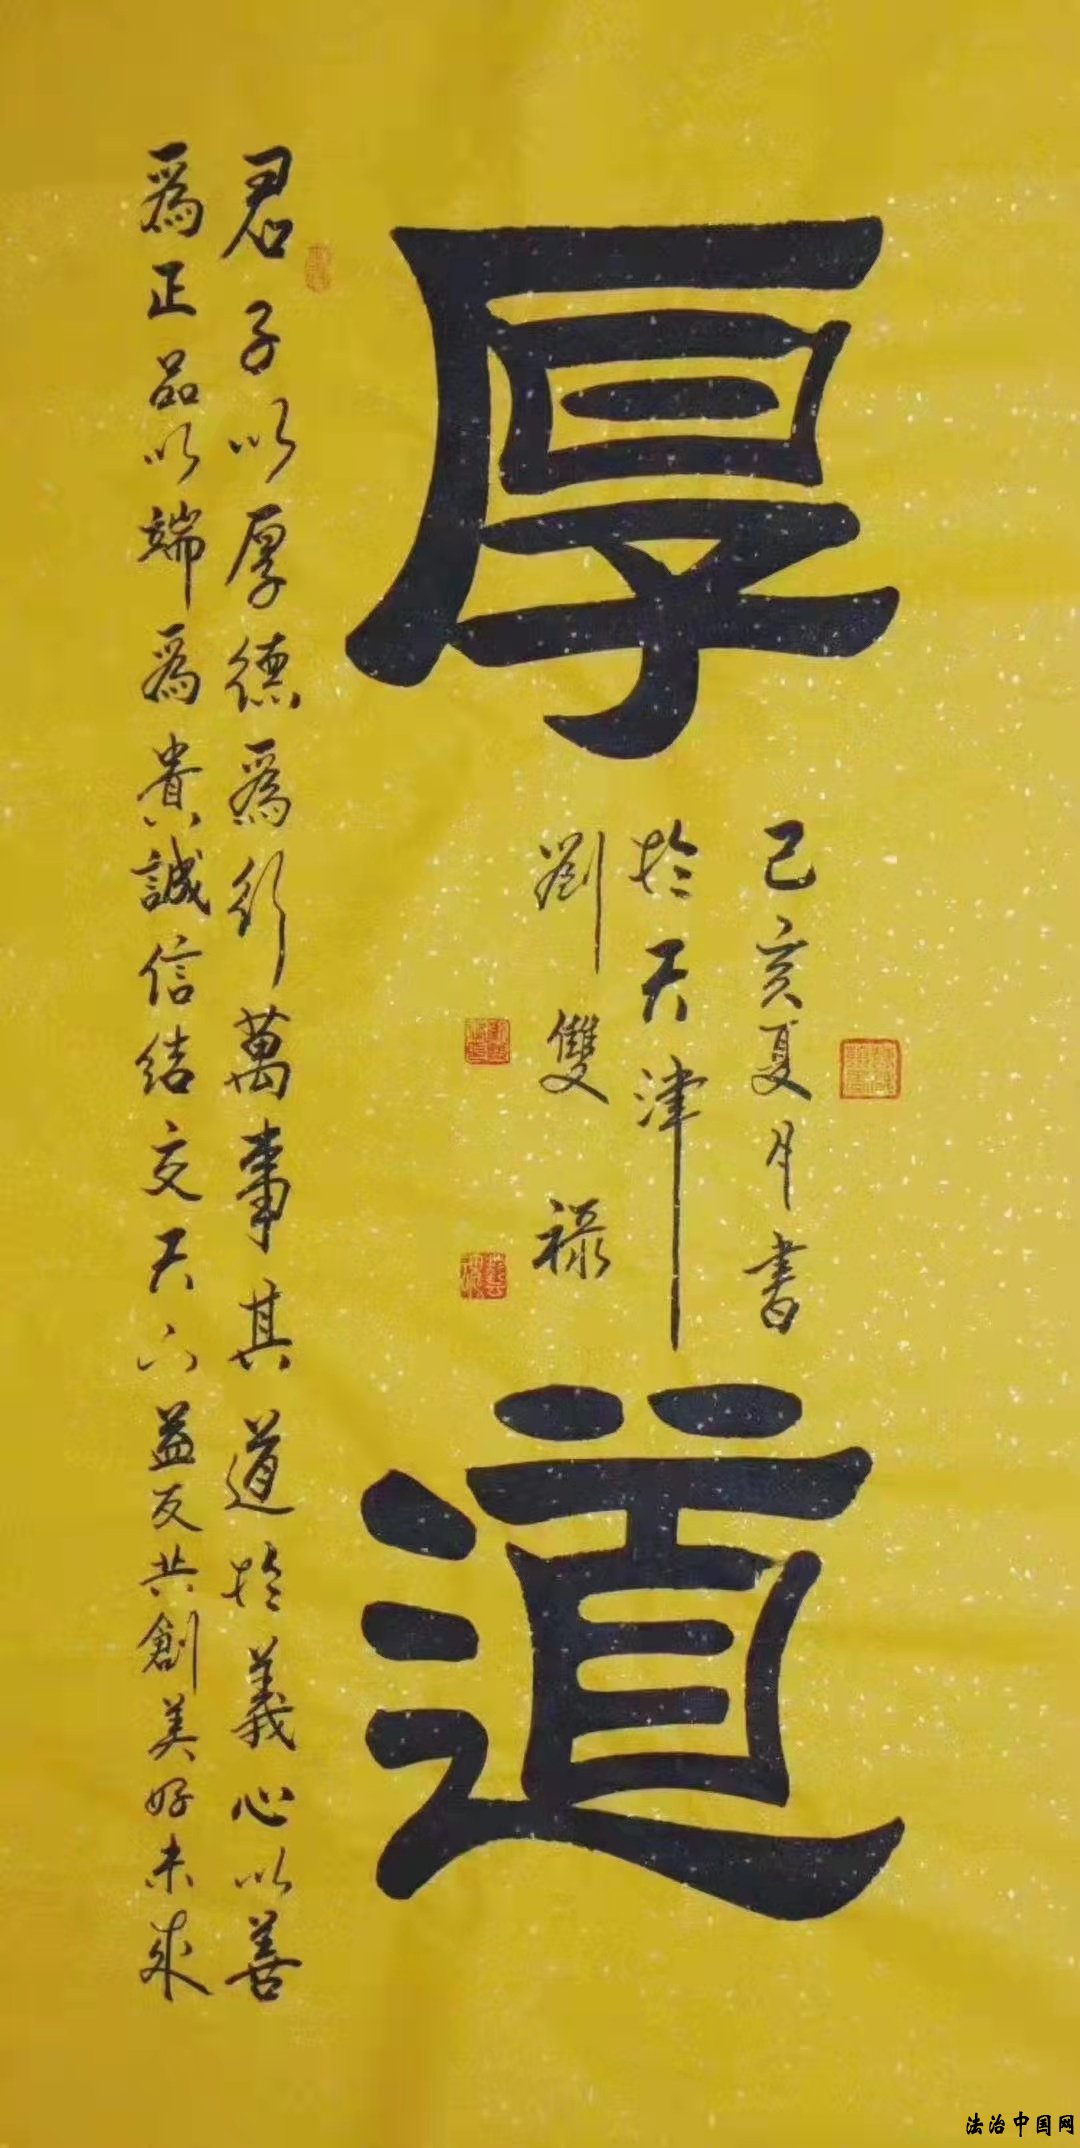 厚道
己亥夏月書
於天津
劉雙祿
君子以厚德為行萬事其道於義心以善
為正品以端為貴誠信結交天下益友共創美好未來
法治中国网